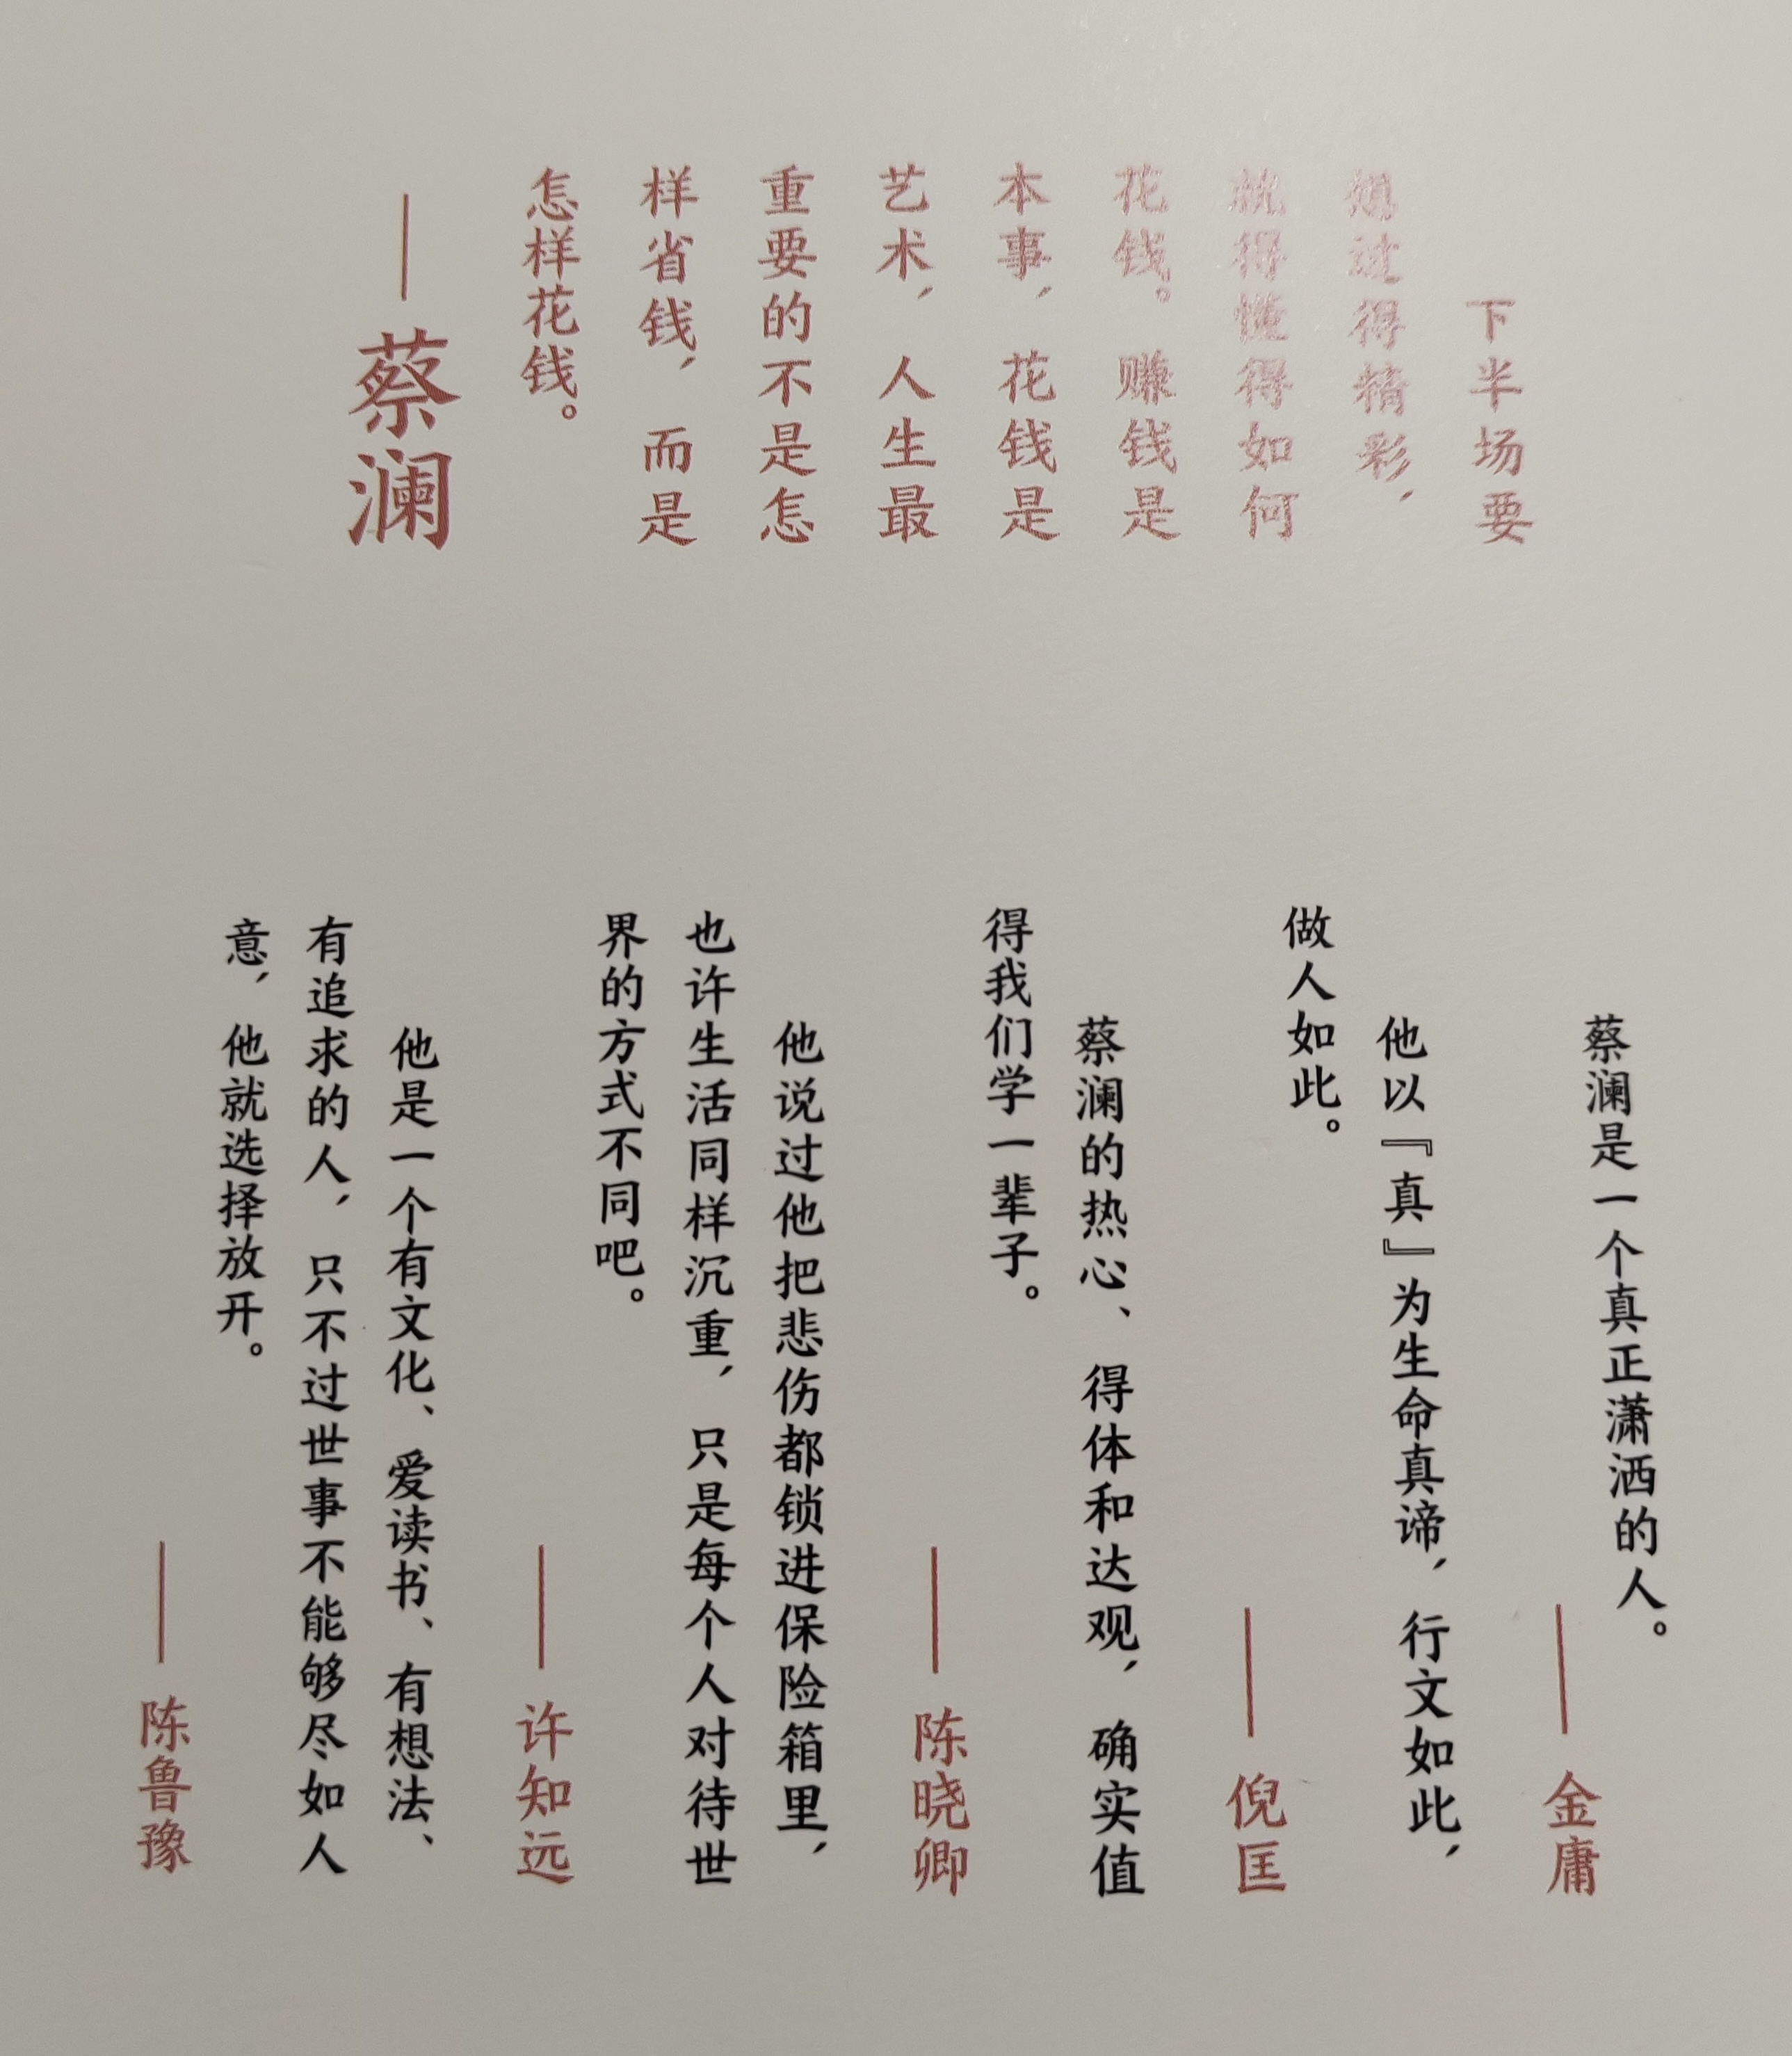 下半场要
想过得精彩，
就得懂得如何
花钱。赚钱是
本事，花钱是
艺术，人生最
重要的不是怎
样省钱，而是
怎样花钱。
——蔡澜
蔡澜是一个真正潇洒的人。
——金庸
他以『真』为生命真谛，行文如此，
做人如此。
——倪匡
蔡澜的热心、得体和达观，确实值
得我们学一辈子。
——陈晓卿
他说过他把悲伤都锁进保险箱里，
也许生活同样沉重，只是每个人对待世
界的方式不同吧。
——许知远
他是一个有文化、爱读书、有想法、
有追求的人，只不过世事不能够尽如人
意，他就选择放开。
——陈鲁豫